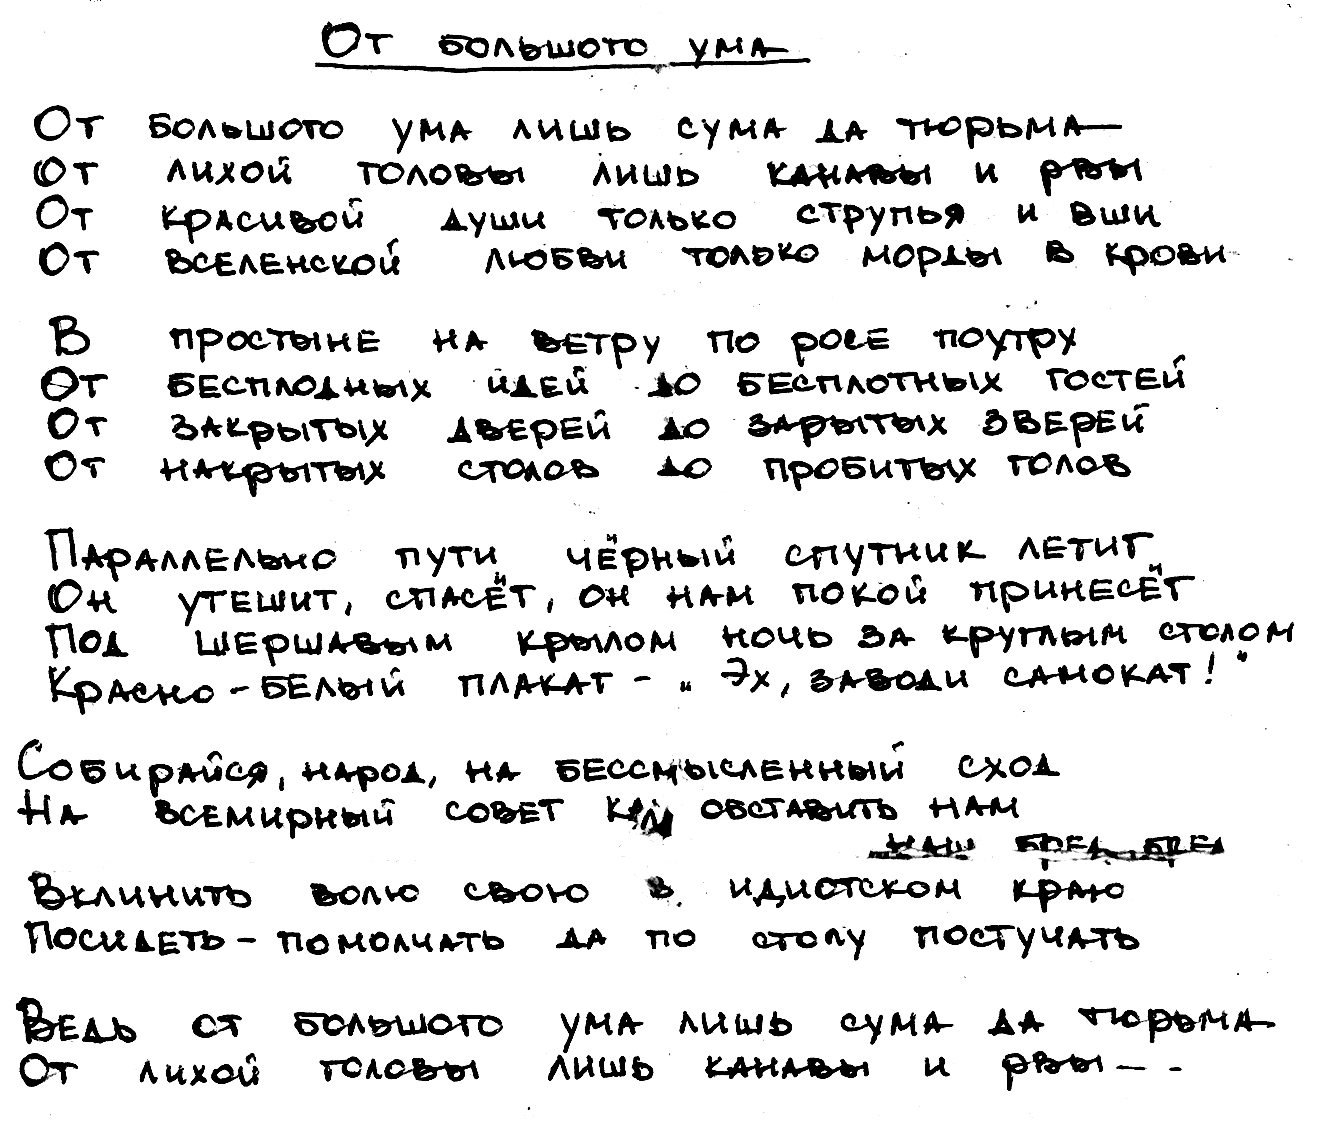 От большого ума
От большого ума лишь сума да тюрьма
От лихой головы лишь канавы и рвы
От красивой души только струпья и вши
От вселенской любви только морды в крови
В простыне на ветру по росе поутру
От бесплодных идей до бесплотных гостей
От закрытых дверей до зарытых зверей
От накрытых столов до пробитых голов
Параллельно пути чёрный спутник летит
Он утешит, спасёт, он нам покой принесёт
Под шершавым крылом ночь за круглым столом
Красно-белый плакат - "Эх, заводи самокат!"
Собирайся, народ, на бессмысленный сход
На всемирный совет как обставить нам
наш бред, бред
Вклинить волю свою в идиотском краю
Посидеть - помолчать да по столу постучать
Ведь от большого ума лишь сума да тюрьма
От лихой головы лишь канавы и рвы - - -